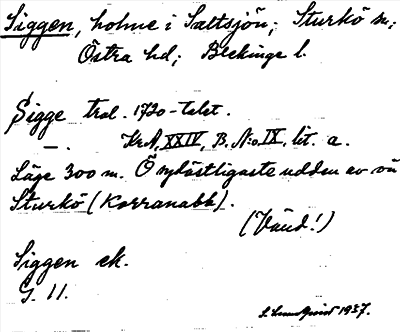 Siggen, holme i Saltsjön; Sturkö sn;
Östra hd; Blekinge l.
Sigge trol. 1720-talet.
—„— KrA, XXIV, B. N:o IX, lit. a.
Läge 300 m. Ö sydöstligaste udden av ön
Sturkö (Korranabb).
(Vänd!)
Siggen ek.
G. 11.
S. Lundquist 1937.